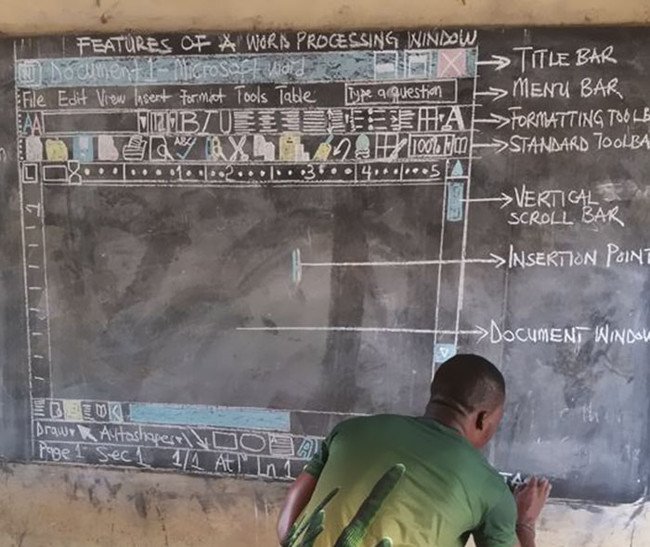 FEATURES OF A WORD PROCESSING WINDOW
Document 1 - Microsoft word
TITLE BAR
File Edit View Insert Format Tools Table
Type a question
MENU BAR
AA B I U A
FORMATTING TOOLB
ABC 100%
STANDARD TOOLBA
L 1 2 3 4 5
VERTICAL
SCROLL BAR
INSERTION POINT
DOCUMENT WINDOW
Draw Autoshapes A
Page 1 Sec 1 1/1 At Ln 1
STA